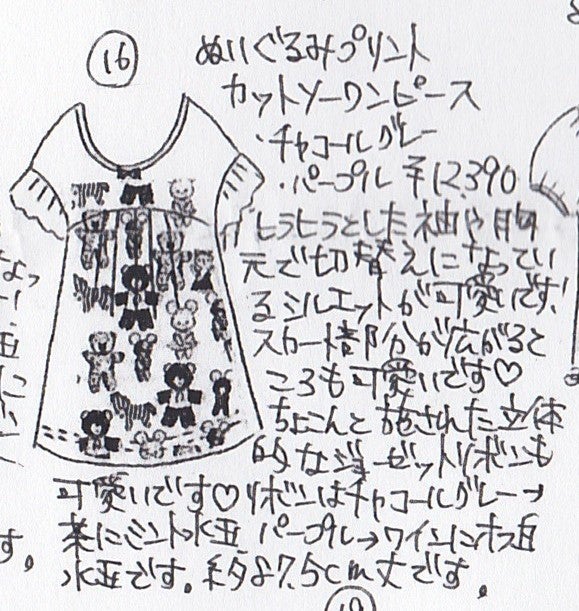 ⑯
ぬいぐるみプリント
カットソーワンピース
・チャコールグレー
・パープル ¥12,390
ヒラヒラとした袖や胸
元で切替えになってい
るシルエットが可愛いです!
スカート部分が広がると
ころも可愛いです♡
ちょこんと施された立体
的なジョーゼットリボンも
可愛いです♡リボンはチャコールグレー→
茶にミント水玉 パープル→ワインに
水玉です。約87.5cm丈です。
す。